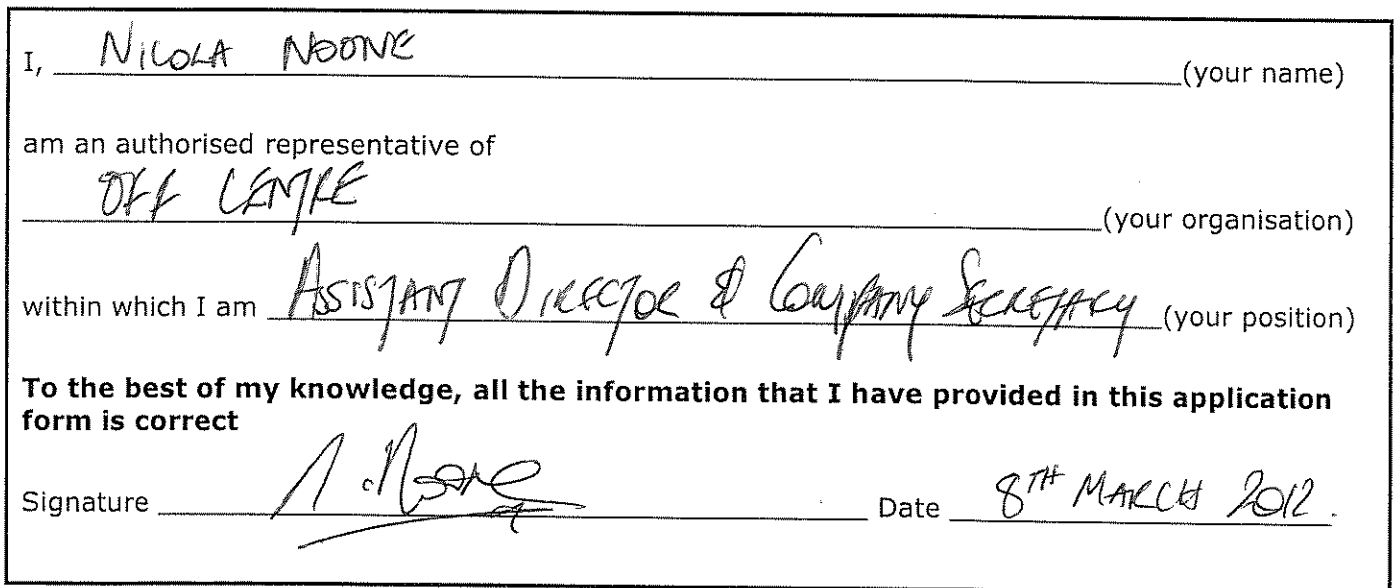 I, NICOLA NOONE (your name)
am an authorised representative of
OFF CENTRE (your organisation)
within which I am ASSISTANT DIRECTOR & COMPANY SECRETARY (your position)
To the best of my knowledge, all the information that I have provided in this application
form is correct
Signature N. Noone Date 8TH MARCH 2012.